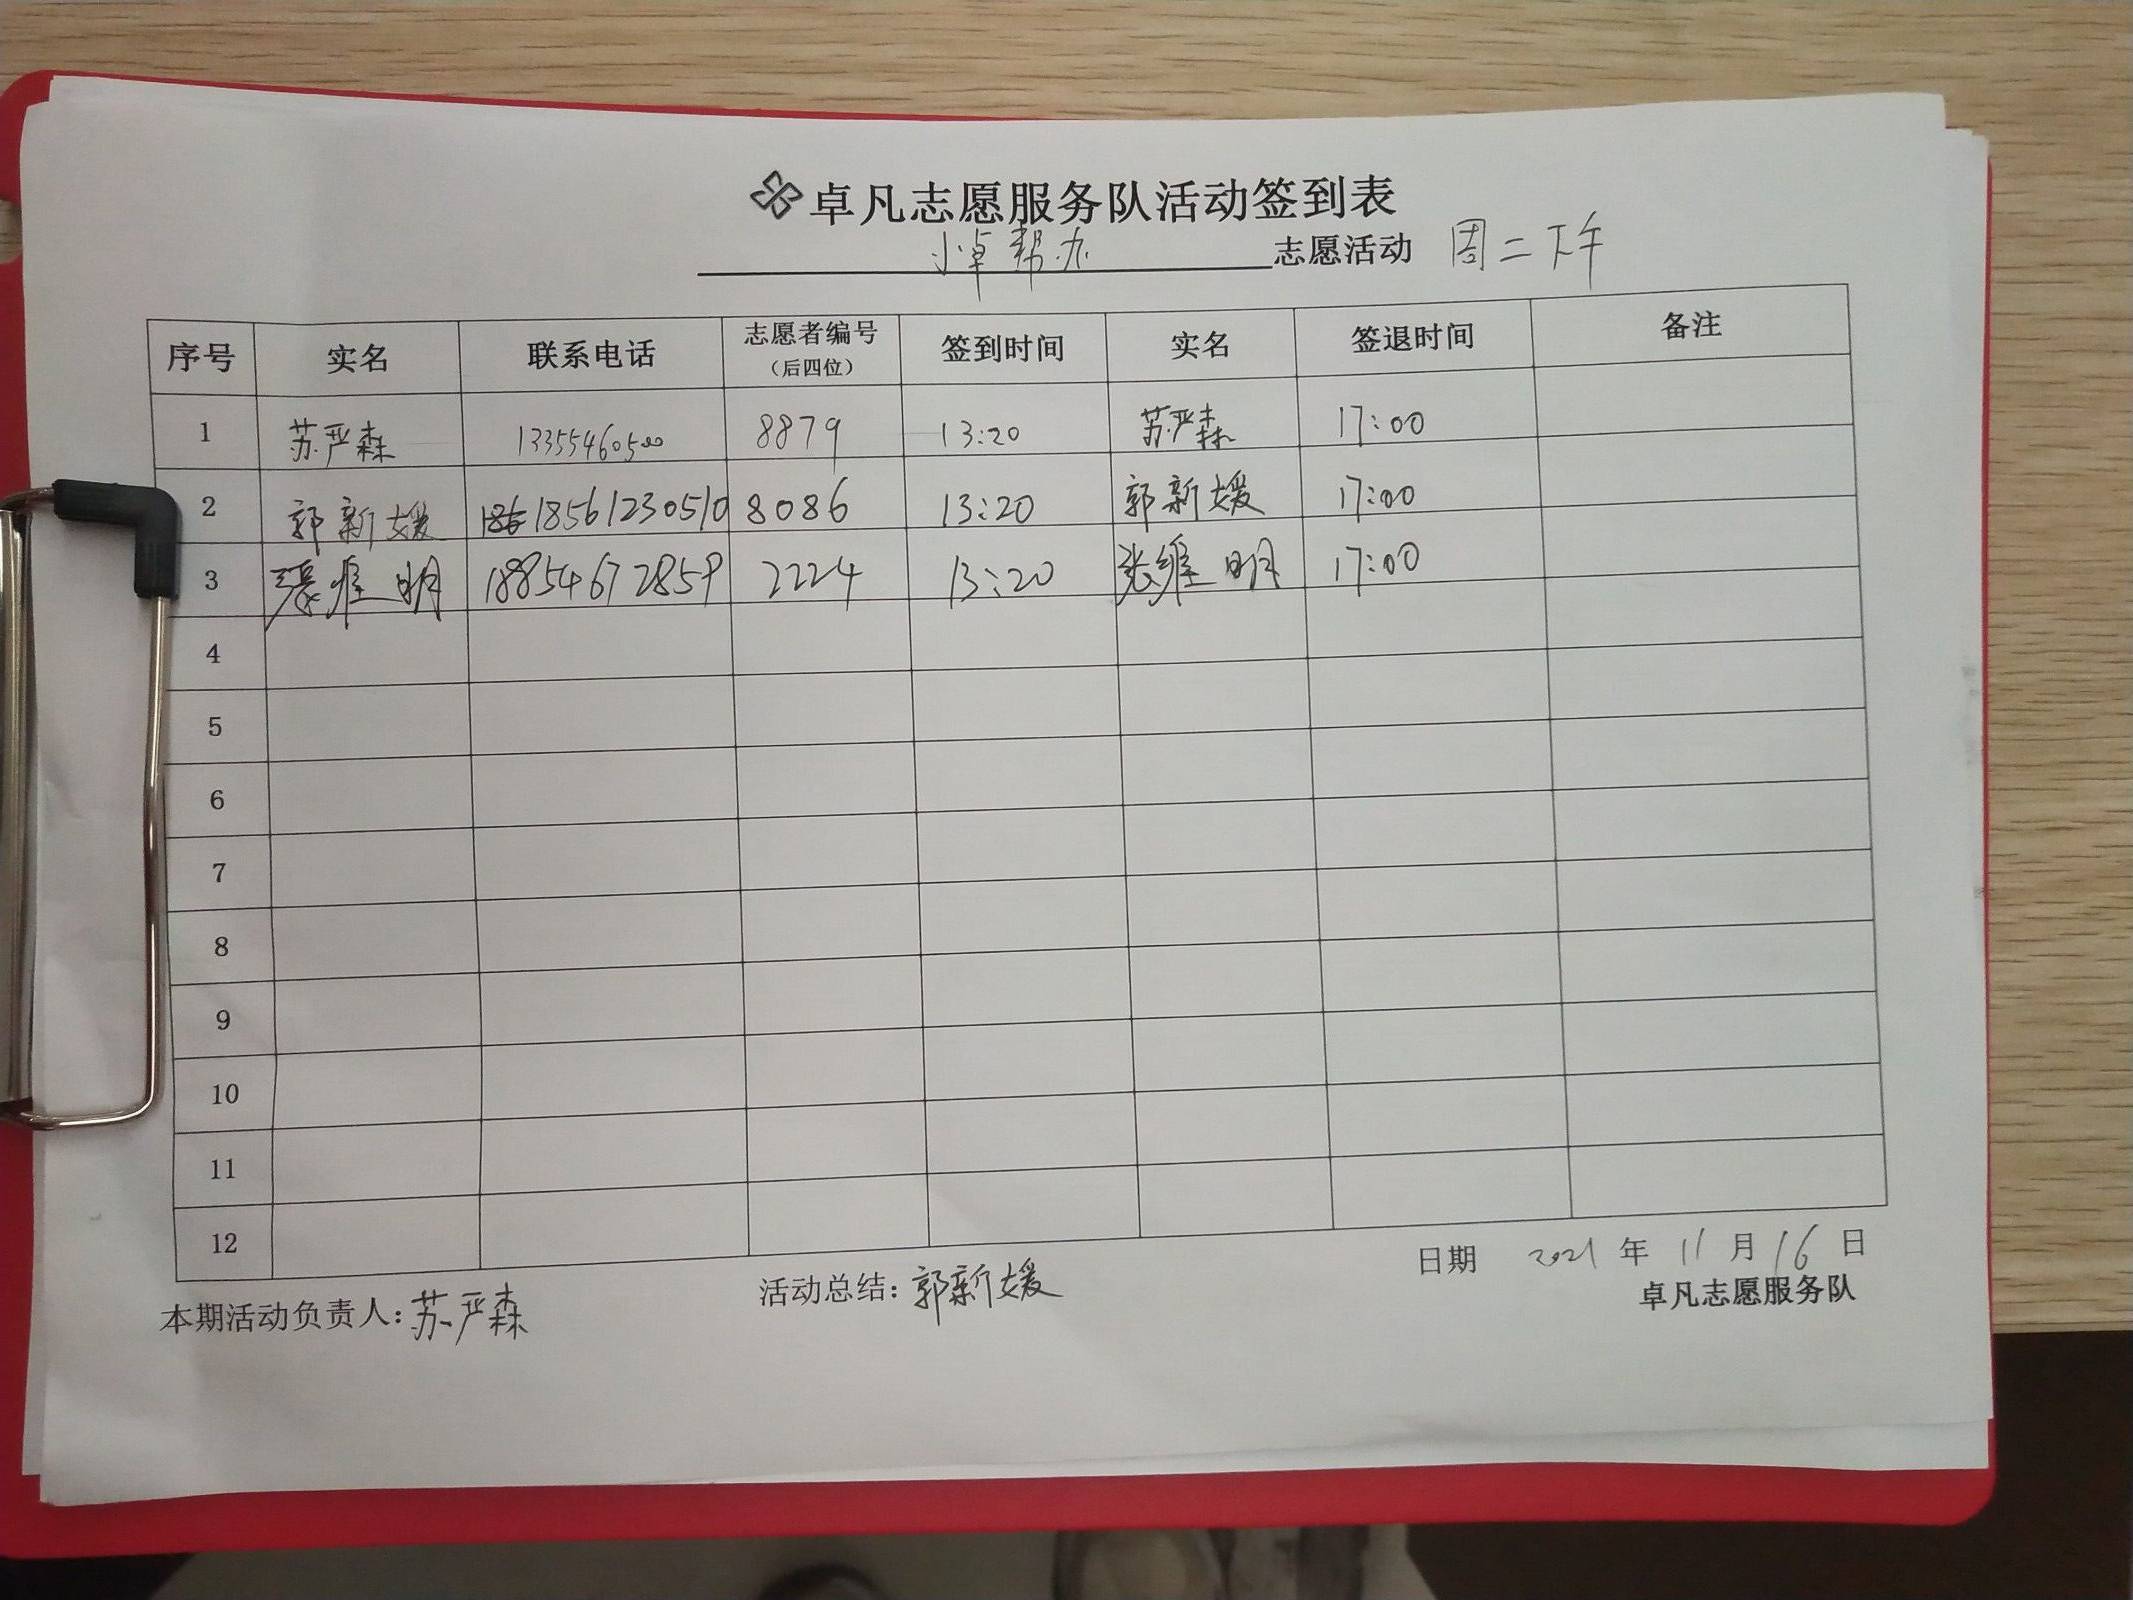 卓凡志愿服务队活动签到表
小卓帮办 志愿活动 周二下午
序号 实名 联系电话 志愿者编号（后四位） 签到时间 实名 签退时间 备注
1 苏严森 13355460500 8879 13:20 苏严森 17:00
2 郭新媛 18561230510 8086 13:20 郭新媛 17:00
3 张维明 18854672859 2224 13:20 张维明 17:00
4
5
6
7
8
9
10
11
12
日期 2021 年 11 月 16 日
本期活动负责人：苏严森 活动总结：郭新媛 卓凡志愿服务队